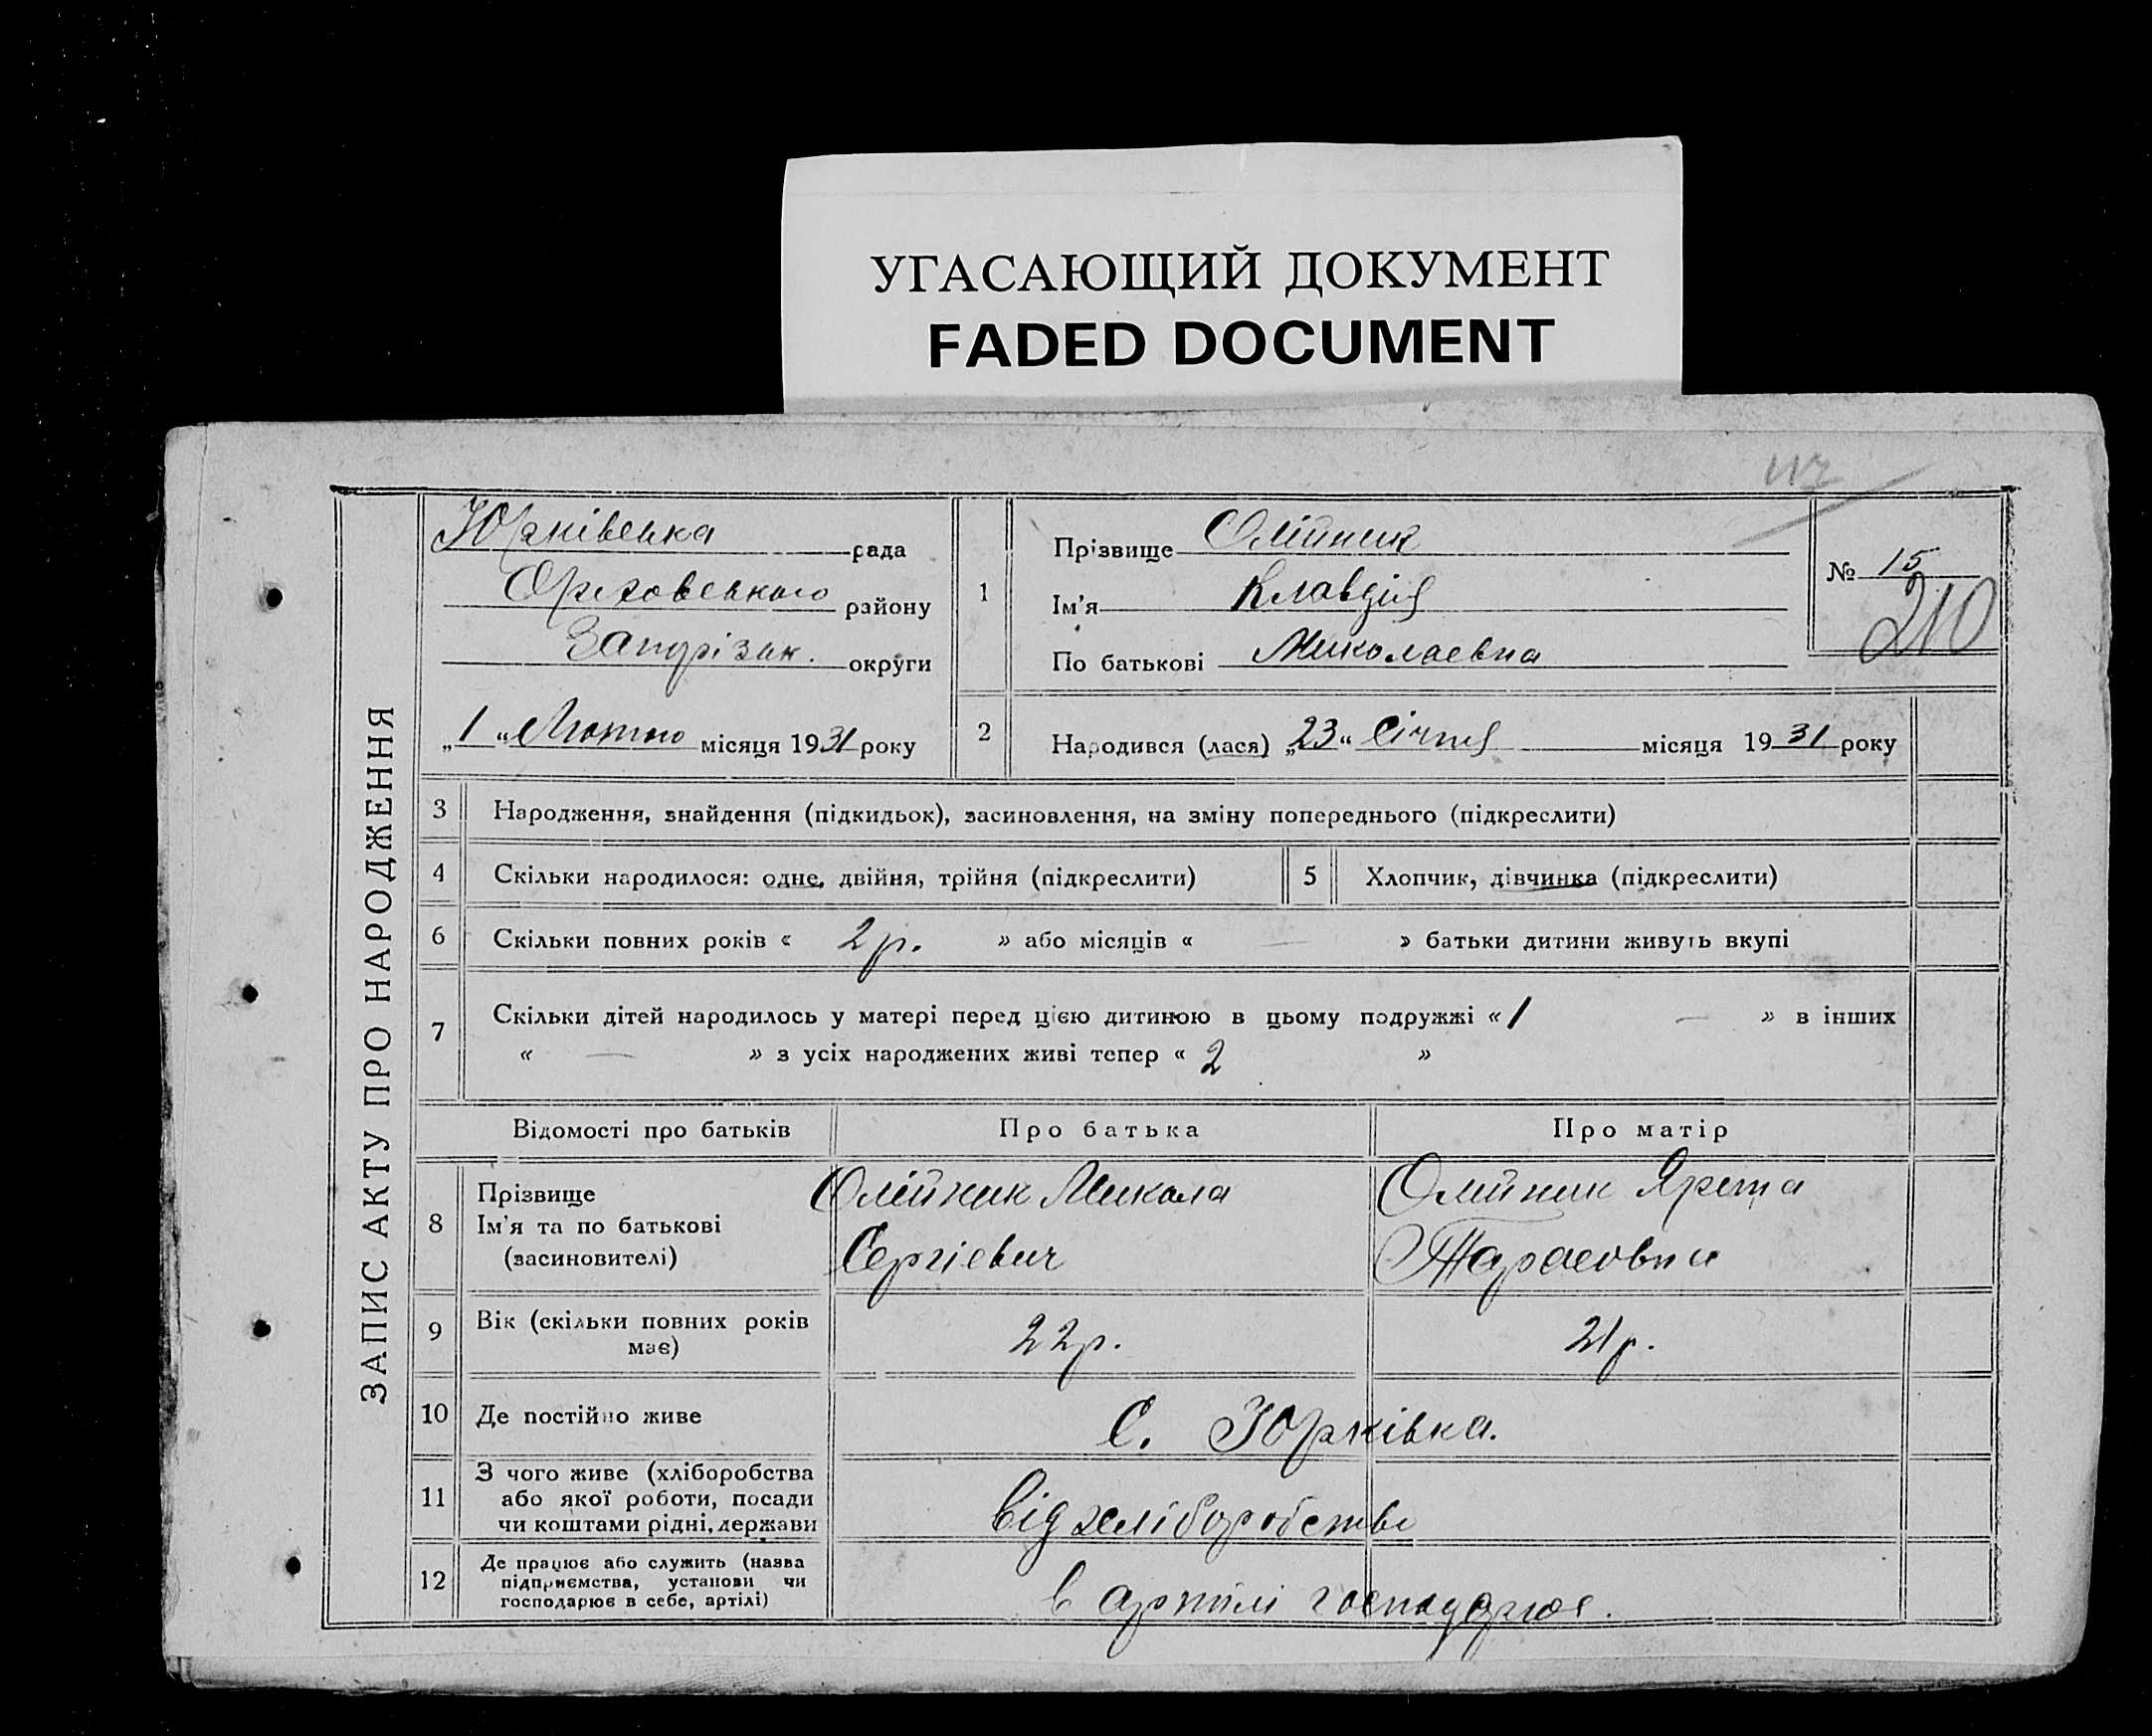 УГАСАЮЩИЙ ДОКУМЕНТ
FADED DOCUMENT
ЗАПИС АКТУ ПРО НАРОДЖЕННЯ
117
Юрківська рада
Оріховського району
Запоріжк. округи
„1“ Лютого місяця 1931 року
1
Прізвище Олійник
Ім'я Клавдія
По батькові Миколаевна
№ 15
210
2 Народився (лася) „23“ Січня місяця 1931 року
3 Народження, знайдення (підкидьок), засиновлення, на зміну попереднього (підкреслити)
4 Скільки народилося: одне, двійня, трійня (підкреслити) 5 Хлопчик, дівчинка (підкреслити)
6 Скільки повних років « 2 р. » або місяців « — » батьки дитини живуть вкупі
7 Скільки дітей народилось у матері перед цією дитиною в цьому подружжі « 1 — » в інших
« — » з усіх народжених живі тепер « 2 »
Відомості про батьків Про батька Про матір
8 Прізвище
Ім'я та по батькові
(засиновителі)
Олійник Микола
Сергіевич
Олійник
Тарасовна
9 Вік (скільки повних років
має)
22 р. 21 р.
10 Де постійно живе С. Юрківка.
11 З чого живе (хліборобства
або якої роботи, посади
чи коштами рідні, держави
від хліборобства
12 Де працює або служить (назва
підприємства, установи чи
господарює в себе, артілі)
в артілі господарює.